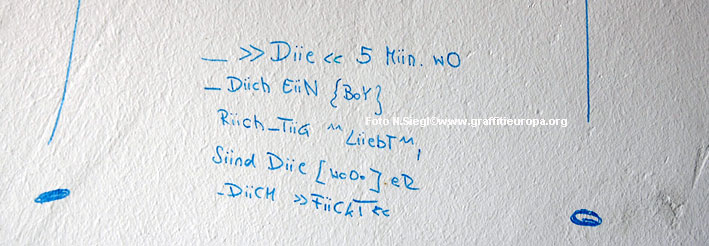 _ >> Diie << 5 Miin. wO
_ Diich EiiN {BoY}
Riich_TiiG ^^LiiebT^^,
Foto N.Siegl©www.graffitieuropa.org
Siind Diie [woOo].eR
_DiiCH >>FiiCkT<<